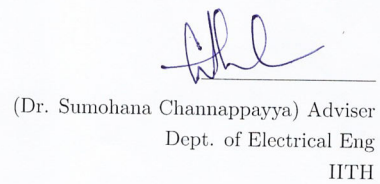 (Dr. Sumohana Channappayya) Adviser
Dept. of Electrical Eng
IITH